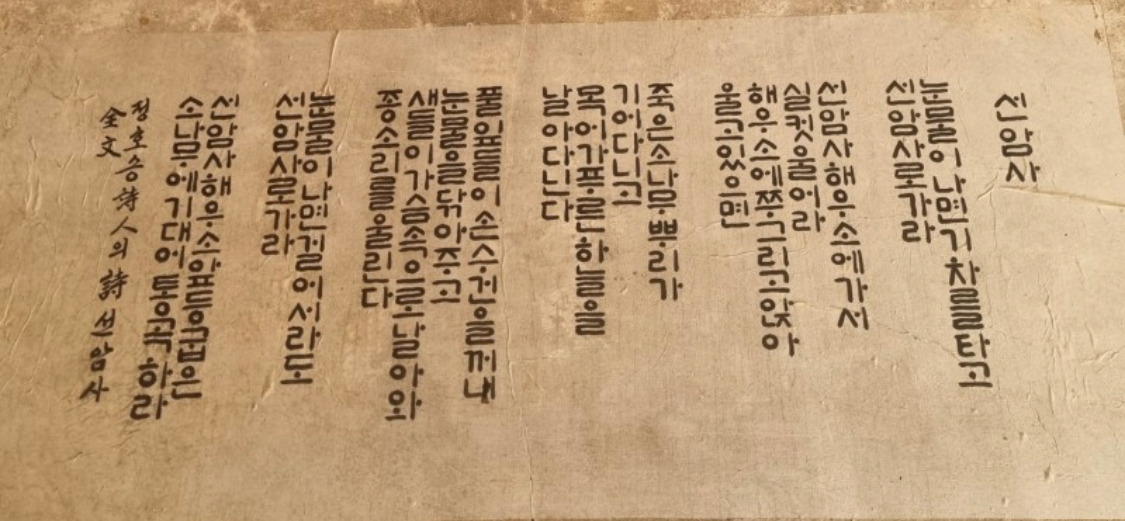 선암사
눈물이 나면 기차를 타고
선암사로 가라
선암사 해우소에 가서
실컷 울어라
해우소에 쭈그리고 앉아
울고 있으면
죽은 소나무 뿌리가
기어다니고
목어가 푸른 하늘을
날아다닌다
풀잎들이 손수건을 꺼내
눈물을 닦아주고
새들이 가슴 속으로 날아와
종소리를 울린다
눈물이 나면 걸어서라도
선암사로 가라
선암사 해우소 앞 등 굽은
소나무에 기대어 통곡하라
정호승 詩人의 詩 선암사
全文